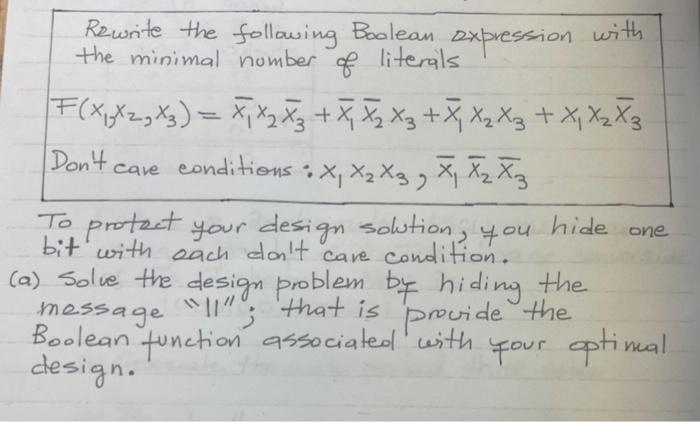 Rewrite the following Boolean expression with
the minimal number of literals
F(x₁,x₂,x₃) = x̄₁x₂x̄₃ + x̄₁x̄₂x₃ + x̄₁x₂x₃ + x₁x₂x̄₃
Don't care conditions : x₁x₂x₃, x̄₁x̄₂x̄₃
To protect your design solution, you hide one
bit with each don't care condition.
(a) Solve the design problem by hiding the
message "11"; that is provide the
Boolean function associated with your optimal
design.